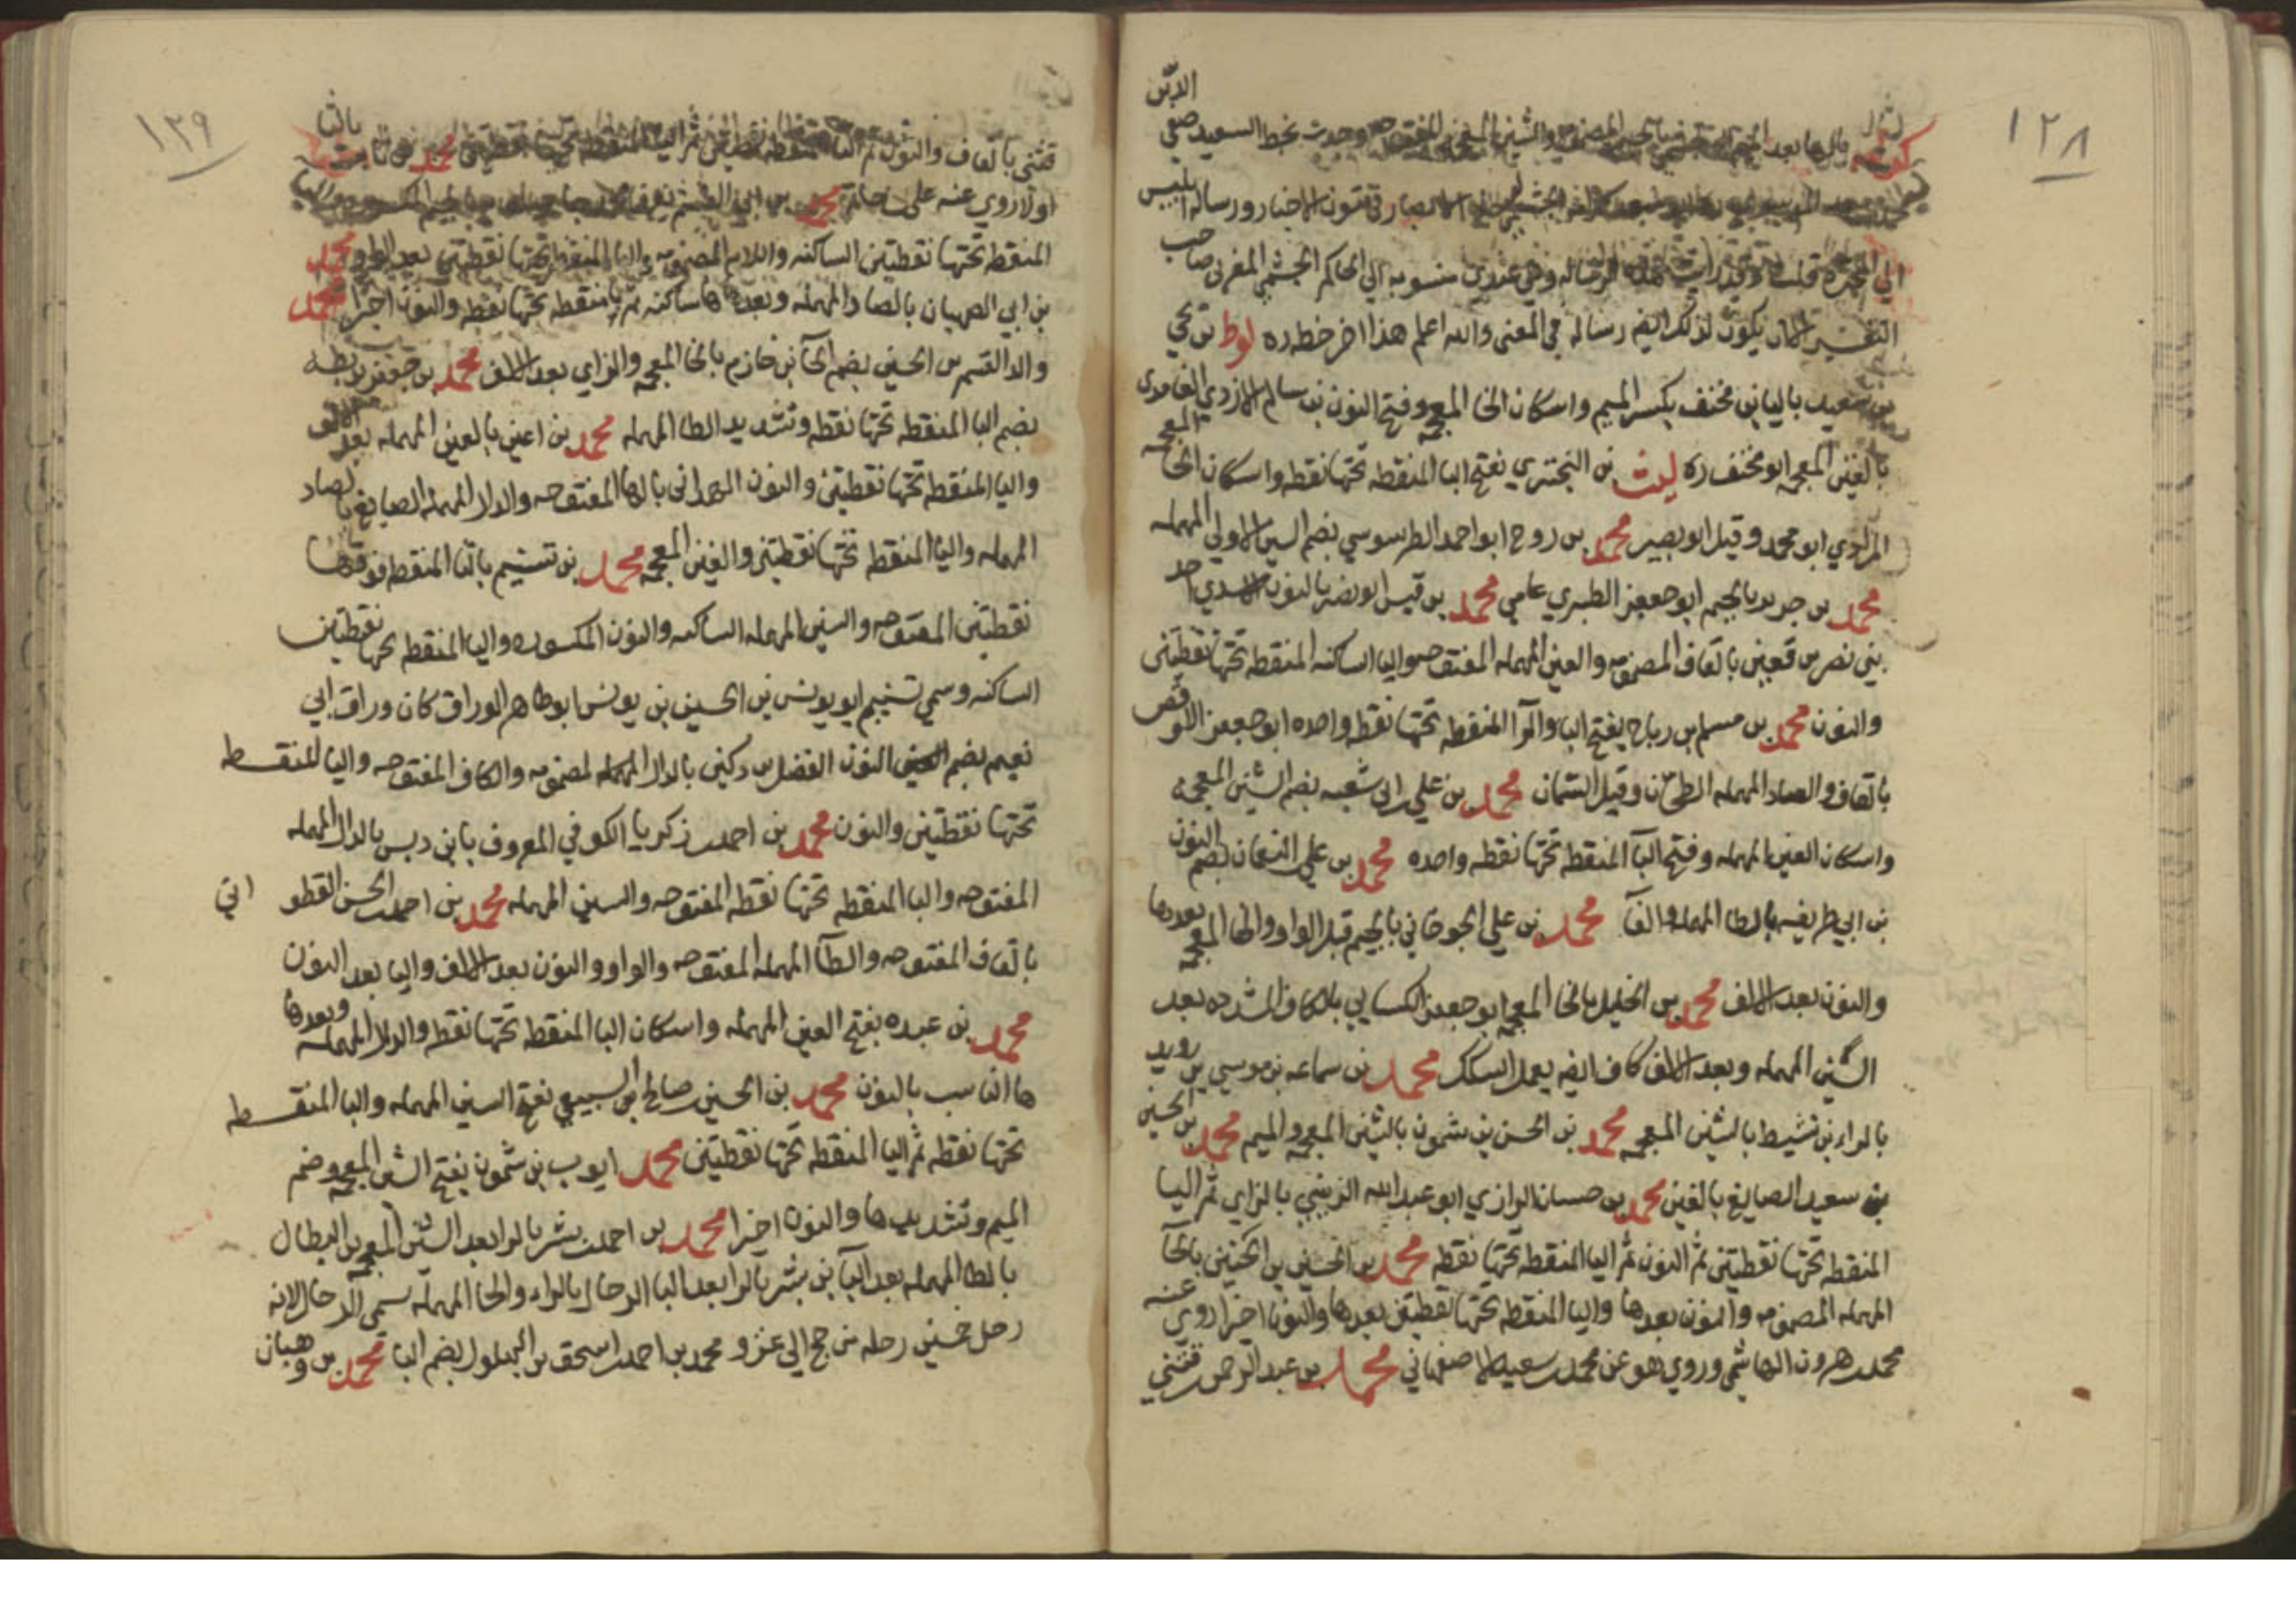 ١٢٨
الدين
بالراء بعد وجدت بخط السعيد صفي
الاخبار ورسالة ابليس
الى المجبرة قلت هذه الرسالة وهي عندي منسوبه الي الحاكم الجشمي المغربي صاحب
التفسير الا ان يكون لذلك ايضه رساله في المعنى والله اعلم هذا اخر خطه ره لوط بن يحيى
بن سعيد باليا بن مخنف بكسر الميم واسكان الخا المعجمه وفتح النون بن سالم الازدي الغامدي
بالغين المعجمه ابو مخنف ره ليث بن البختري بفتح البا المنقطه تحتها نقطه واسكان الخا المعجمه
المرادي ابو محمد وقيل ابو بصير محمد بن روح ابو احمد الطرسوسي بضم السين الاولى المهمله
محمد بن جرير بالجيم ابو جعفر الطبري عامي محمد بن قيس ابو نصر بالنون الاسدي احد
بني نصر بن قعين بالقاف المضمومه والعين المهمله المفتوحه واليا الساكنه المنقطه تحتها نقطتين
والنون محمد بن مسلم بن رباح بفتح البا والرا المنقطه تحتها نقطه واحده ابو جعفر الاوقص
بالقاف والصاد المهمله الطحان وقيل السمان محمد بن علي بن ابي شعبه بضم الشين المعجمه
واسكان العين المهمله وفتح البا المنقطه تحتها نقطه واحده محمد بن علي النعمان بضم النون
بن ابي طريفه بالطا المهمله والفا محمد بن علي الجوخاني بالجيم قبل الواو والخا المعجمه بعدها
والنون بعد الالف محمد بن الخليل بالخا المعجمه ابو جعفر الكسايي بالكاف المشدده بعد
السين المهمله وبعد الالف كاف ايضه يعمل السكك محمد بن سماعه بن موسي بن رويد
بالراء بن نشيط بالشين المعجمه محمد بن الحسن بن شمون بالشين المعجمه والميم محمد بن الحسين
بن سعيد الصايغ بالغين محمد بن حسان الرازي ابو عبد الله الزينبي بالزاي ثم اليا
المنقطه تحتها نقطتين ثم النون ثم اليا المنقطه تحتها نقطه محمد بن الحسين بن الحنين بالحا
المهمله المضمومه والنون بعدها واليا المنقطه تحتها نقطتين بعدها والنون اخيرا روي عنه
محمد بن هرون الهاشمي وروي هو عن محمد بن سعيد الاصفهاني محمد بن عبد الرحمن قنتي
١٢٩
قنتي بالقاف والنون ثم التا محمد بن ثابت بالثا
اولا روي عنه علي بن حاتم محمد بن ابي القسم
المنقطه تحتها نقطتين الساكنه واللام المضمومه واليا المنقطه تحتها نقطتين بعد الواو محمد
بن ابي الصهبان بالصاد المهمله وبعدها ها ساكنه ثم با منقطه تحتها نقطه والنون اخيرا محمد
والد القسم بن الحسين بضم الحا بن خازم بالخا المعجمه والزاي بعد الالف محمد بن جعفر بن بطه
بضم البا المنقطه تحتها نقطه وتشديد الطا المهمله محمد بن اعين بالعين المهمله بعد الالف
واليا المنقطه تحتها نقطتين والنون الهمداني بالها المفتوحه والدال المهمله الصايغ بالصاد
المهمله واليا المنقطه تحتها نقطتين والغين المعجمه محمد بن تسنيم بالتا المنقطه فوقها
نقطتين المفتوحه والسين المهمله الساكنه والنون المكسوره واليا المنقطه تحتها نقطتين
الساكنه وسمي تسنيم ابو يونس بن الحسين بن يونس ابو طاهر الوراق كان وراق ابي
نعيم بضم النون الفضل بن دكين بالدال المهمله المضمومه والكاف المفتوحه واليا المنقطه
تحتها نقطتين والنون محمد بن احمد بن زكريا الكوفي المعروف بابن دبس بالدال المهمله
المفتوحه والبا المنقطه تحتها نقطه المفتوحه والسين المهمله محمد بن احمد بن الحسن القطو اني
بالقاف المفتوحه والطا المهمله المفتوحه والواو والنون بعد الالف واليا بعد النون
محمد بن عبده بفتح العين المهمله واسكان البا المنقطه تحتها نقطه والدال المهمله وبعدها
ها الناسب بالنون محمد بن الحسين بن صالح بن السبيعي بفتح السين المهمله والبا المنقطه
تحتها نقطه ثم اليا المنقطه تحتها نقطتين محمد ايوب بن شمون بفتح الشين المعجمه وضم
الميم وتشديدها والنون اخيرا محمد بن احمد بن بشر بالرا بعد الشين المعجمه بن البطال
بالطا المهمله بعد البا بن بشر بالرا بعد البا الرحال بالراء والحا المهمله سمي الرحال لانه
رحل خمسين رحله من حج الي غزو محمد بن احمد بن اسحق بن البهلول بضم البا محمد بن وهبان